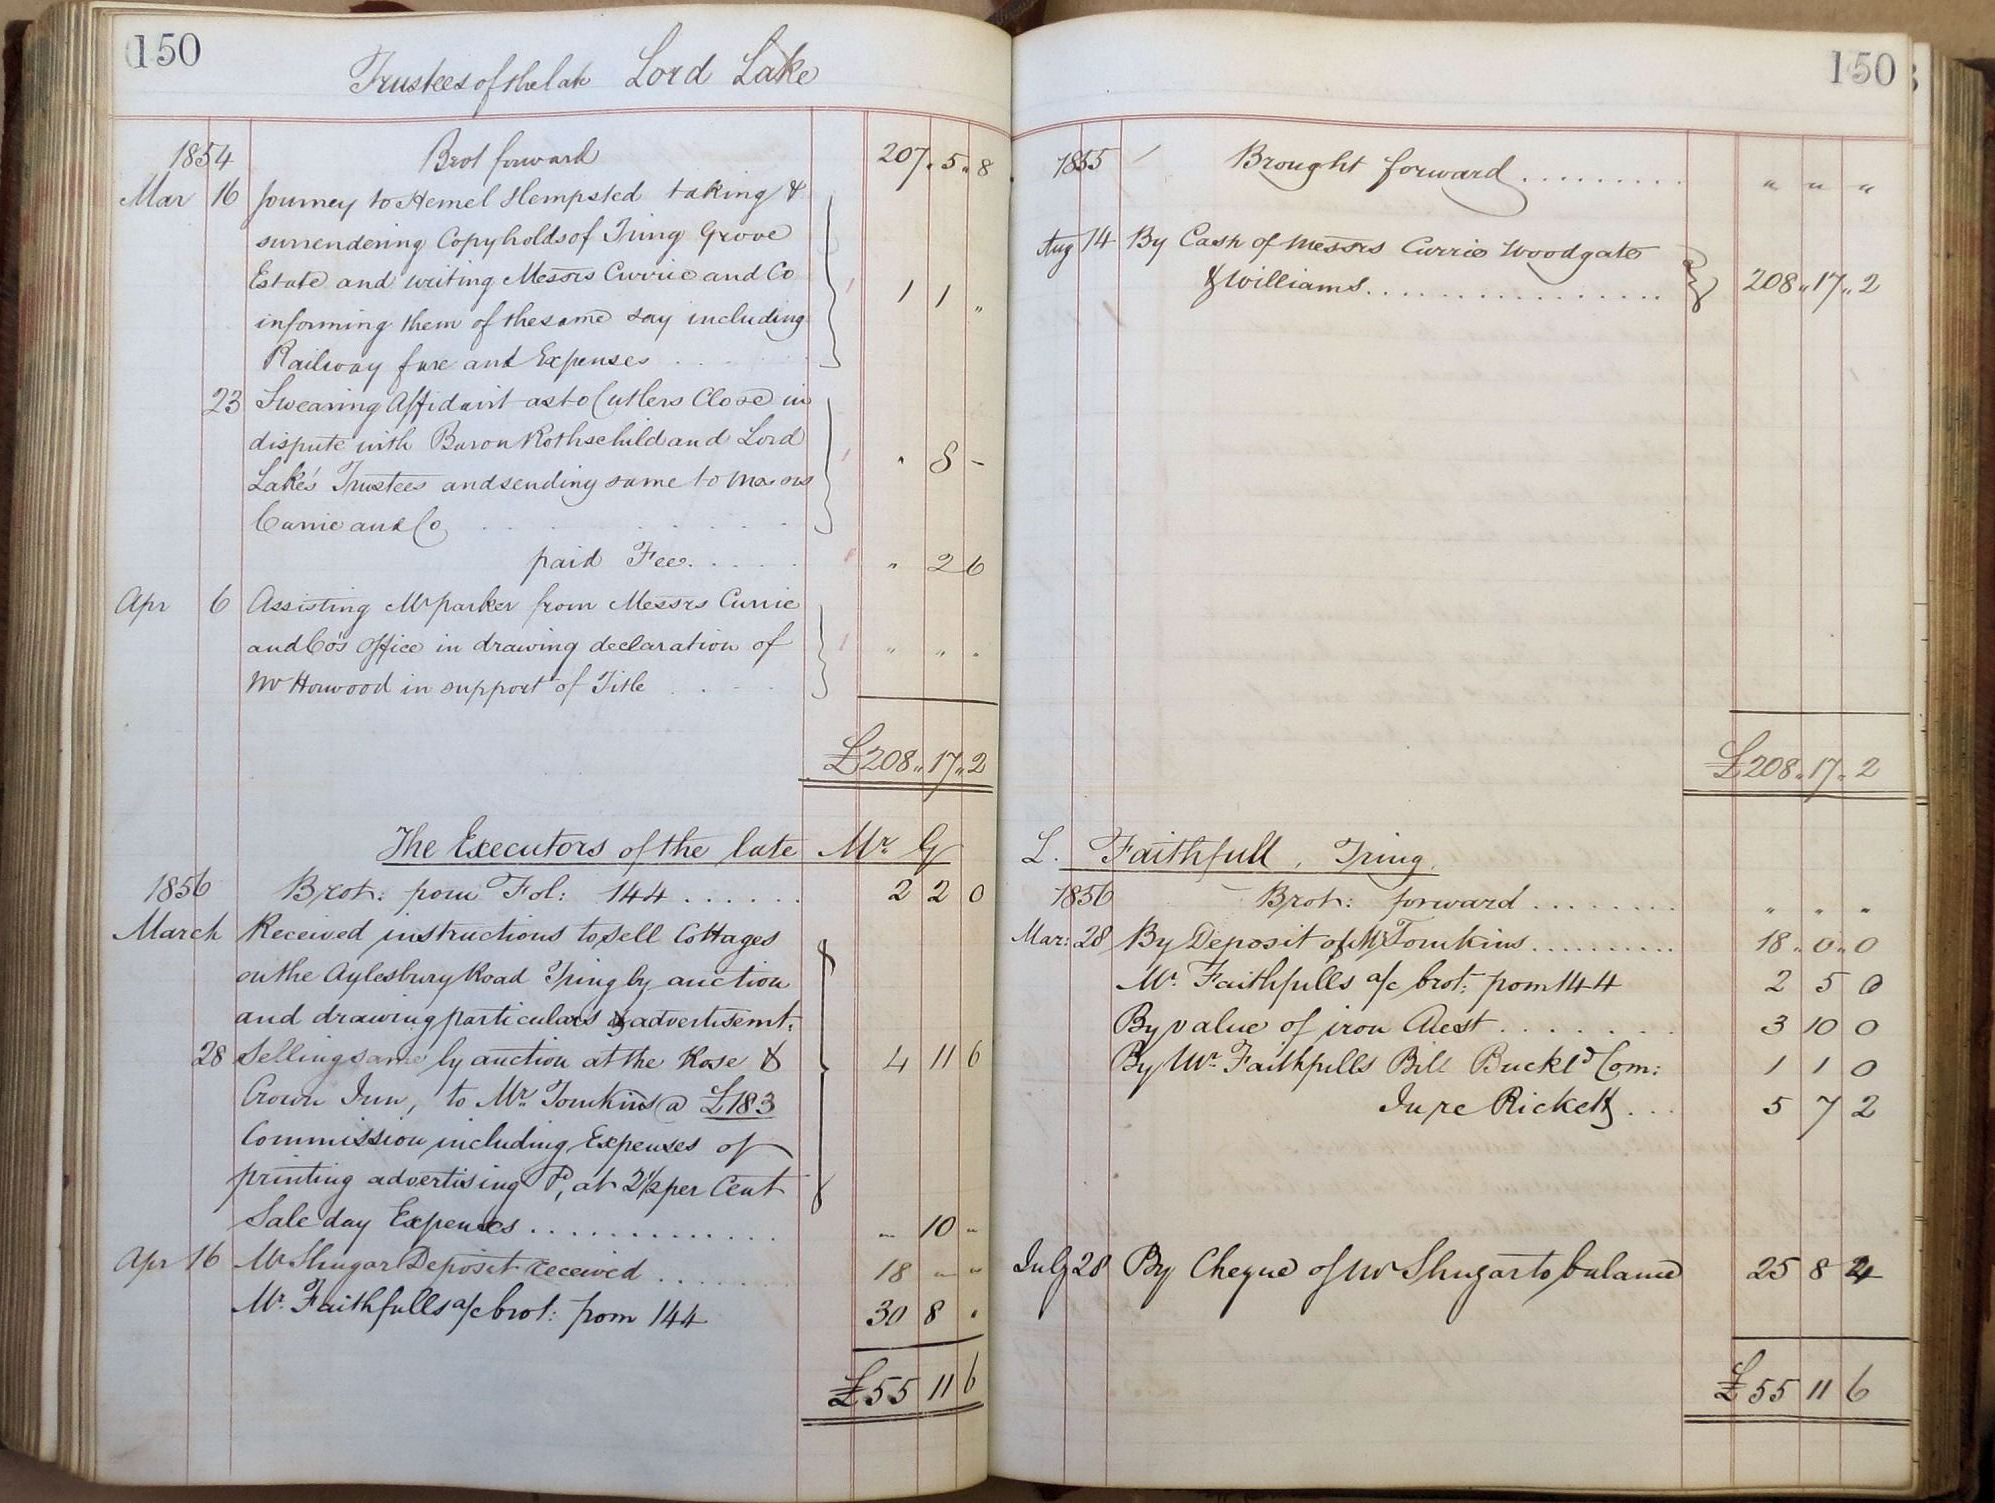 150
Trustees of the late Lord Lake
1854 Brot forward 207 " 5 " 8
Mar 16 Journey to Hemel Hempsted taking &
surrendering Copyholds of Tring Grove
Estate and writing Messrs Currie and Co
informing them of the same day including
Railway fare and Expenses . . . . 1 1 "
23 Swearing Affidavit as to Cutlers Close in
dispute with Baron Rothschild and Lord
Lake's Trustees and sending same to Messrs
Currie and Co . . . . . . " 8 -
paid Fee . . . . . " 2 6
Apr 6 Assisting Mr Parker from Messrs Currie
and Co's Office in drawing declaration of
Mr Horwood in support of Title . . . . " " "
£208 " 17 " 2
The Executors of the late Mr. G
1856 Brot: from Fol: 144 . . . . . . 2 2 0
March Received instructions to sell Cottages
on the Aylesbury Road Tring by auction
and drawing particulars & advertisemt.
28 Selling same by auction at the Rose & 4 11 6
Crown Inn, to Mr. Tomkins @ £183
Commission including Expenses of
printing advertising &c, at 2½ per Cent
Sale day Expenses . . . . . . . . . . . . " 10 "
Apr 16 Mr Shugar Deposit received . . . . . . . 18 " "
Mr. Faithfulls a/c brot: from 144 30 8 "
£55 11 6
150
1855 Brought forward . . . . . . . . . " " "
Aug 14 By Cash of Messrs Currie Woodgate
& Williams . . . . . . . . . . . . . . . . . 208 " 17 " 2
£208 " 17 " 2
L. Faithfull, Tring.
1856 Brot: forward . . . . . . . . " " "
Mar: 28 By Deposit of Mr Tomkins . . . . . . . . . 18 " 0 " 0
Mr. Faithfulls a/c brot: from 144 2 5 0
By value of iron Chest . . . . . . . . 3 10 0
By Mr. Faithfulls Bill Buckld Com: 1 1 0
In re Ricketts . . . 5 7 2
July 28 By Cheque of Mr Shugar to balance 25 8 4
£55 11 6